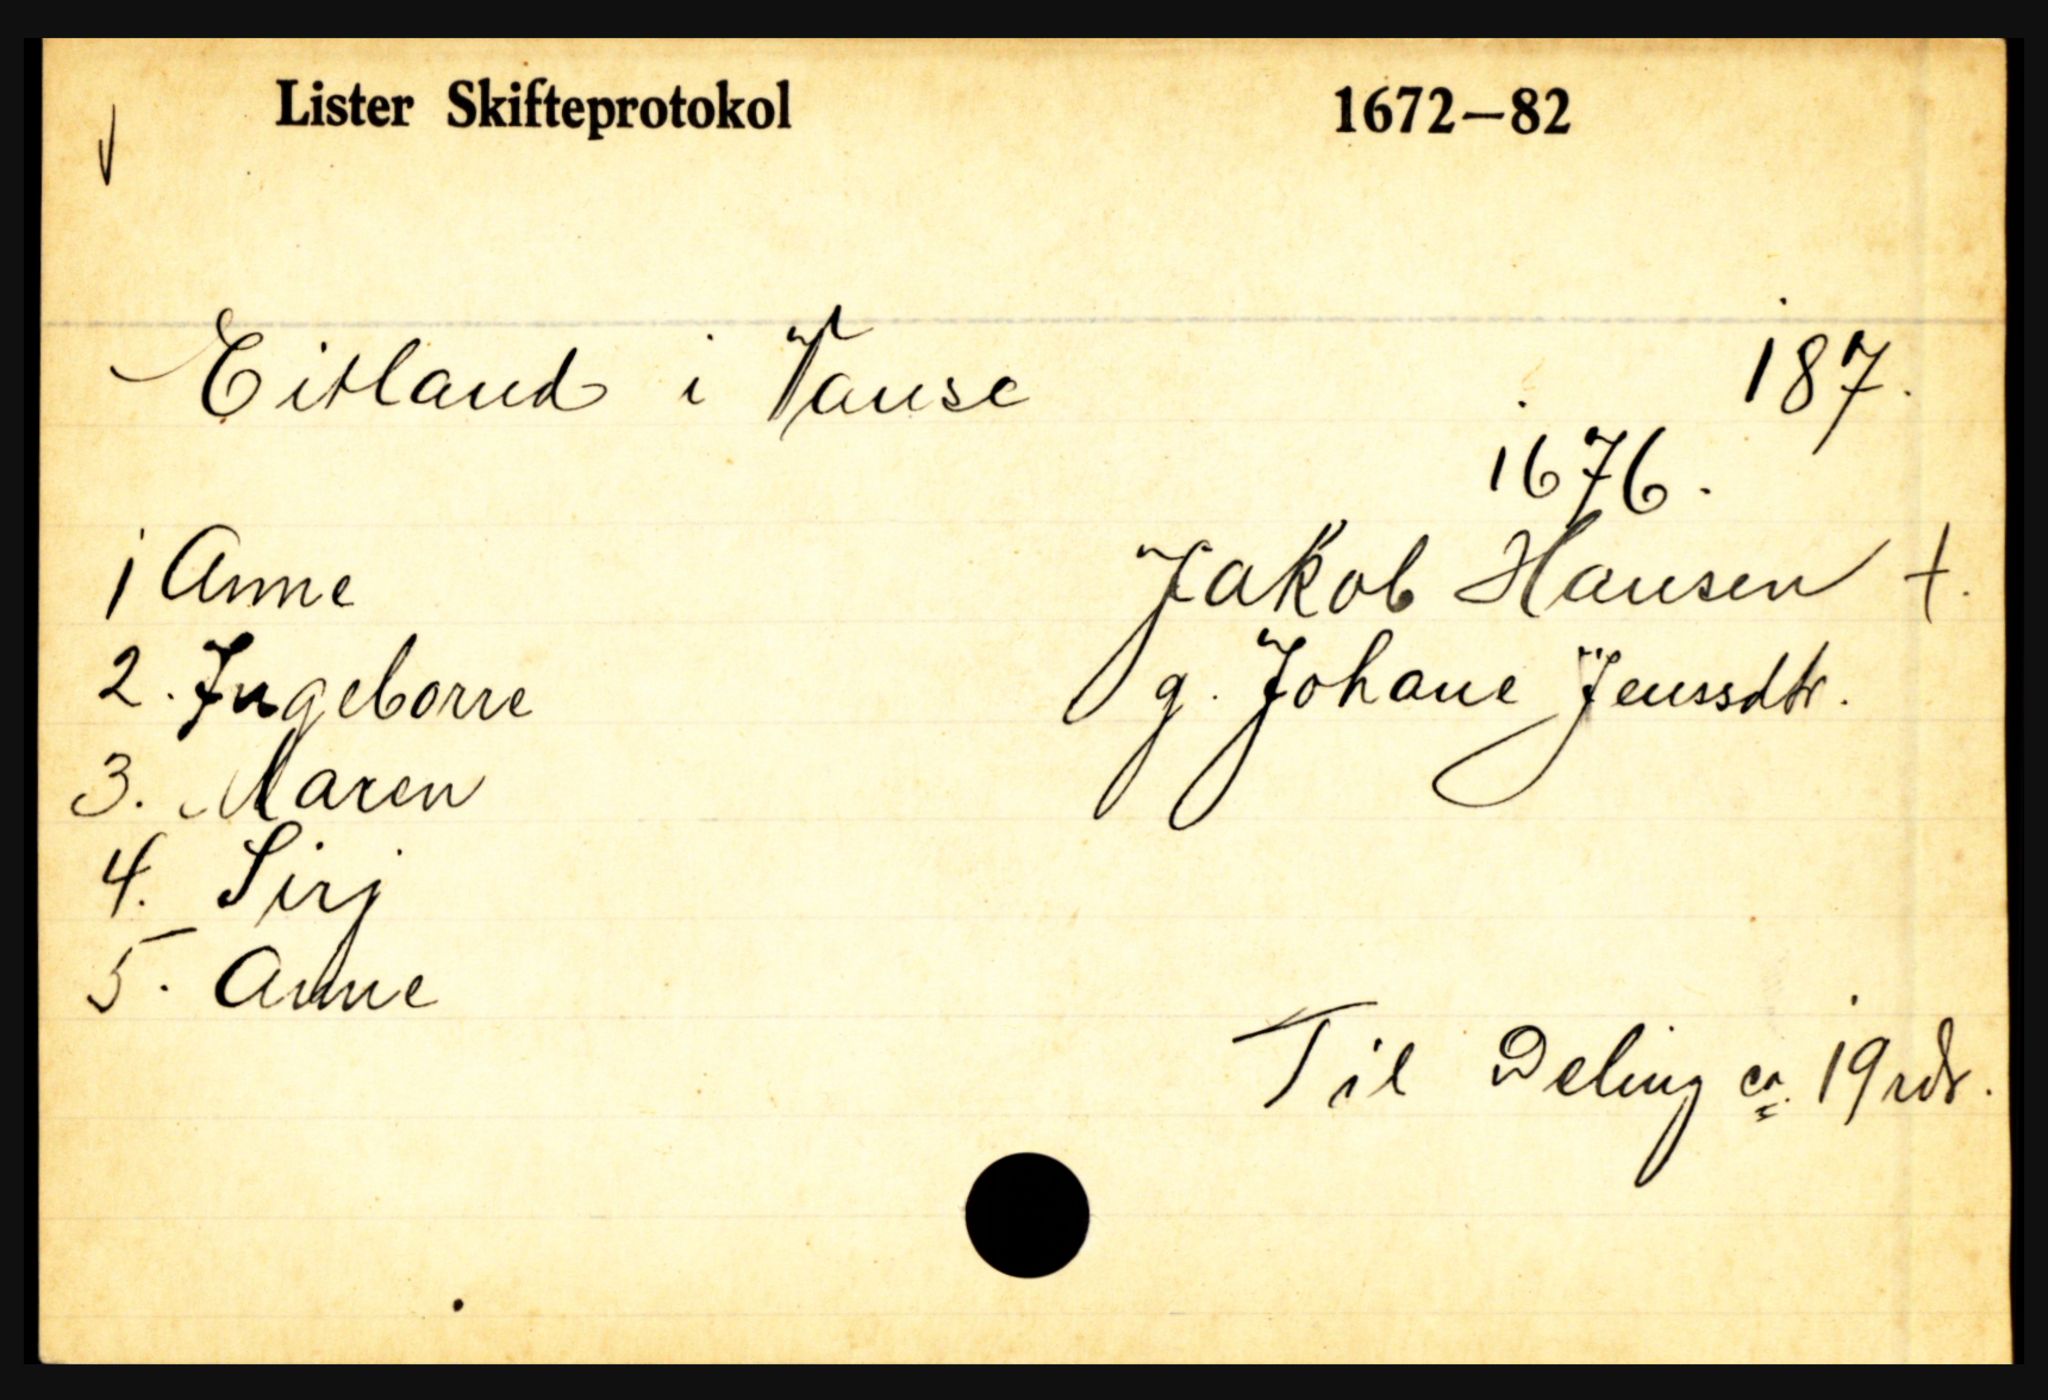 Lister Skifteprotokol 1672—82
Eitland i Vanse 187.
1676.
1 Anne Jakob Hansen †.
2. Ingeborre g. Johane Jenssdtr.
3. Maren
4. Sirj
5. Anne
Til Deling ca. 19 rdr.